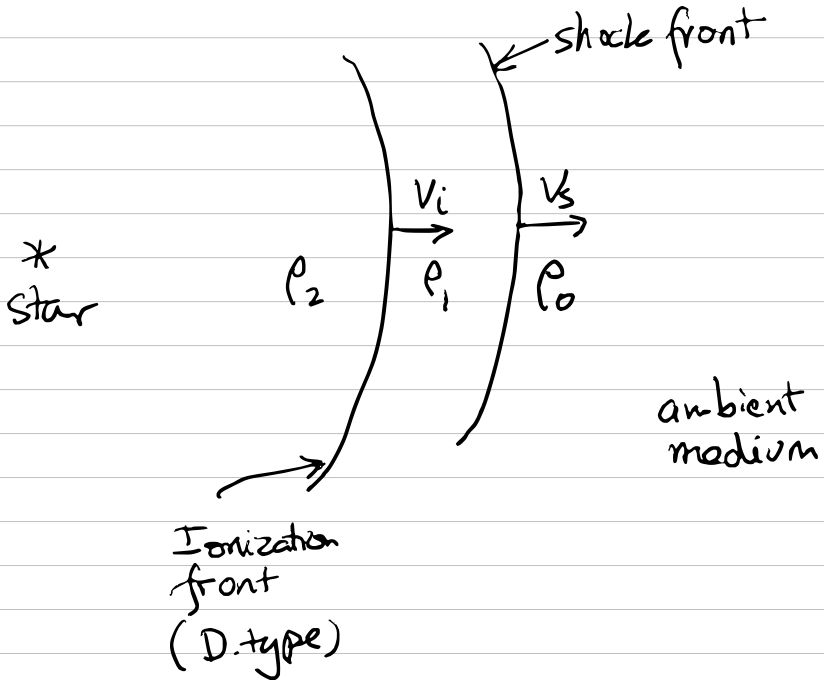 shock front
Vi
Vs
*
star
ρ₂
ρ₁
ρ₀
ambient
medium
Ionization
front
(D.type)